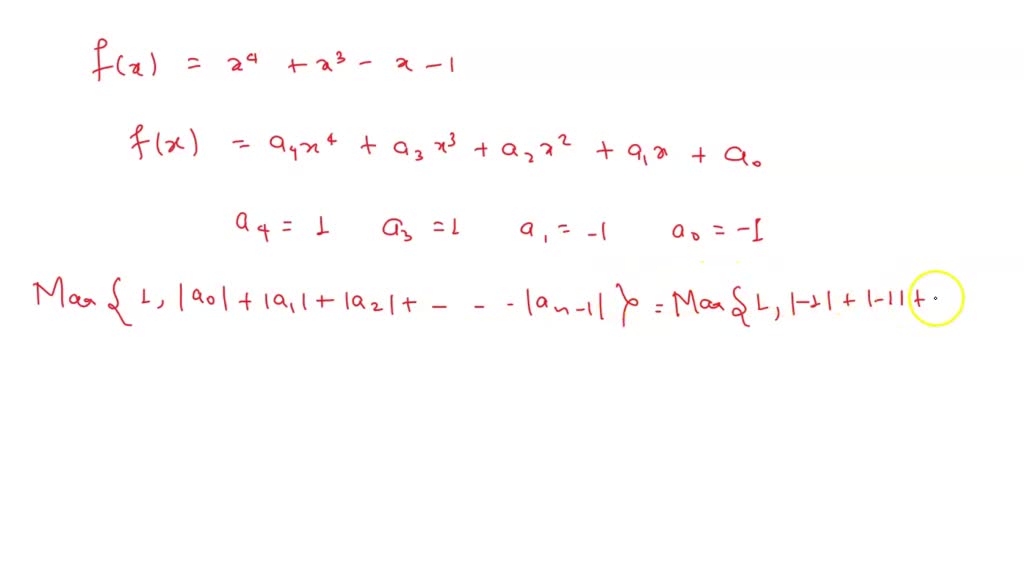 f(x) = x⁴ + x³ - x - 1
f(x) = a₄x⁴ + a₃x³ + a₂x² + a₁x + a₀
a₄ = 1 a₃ = 1 a₁ = -1 a₀ = -1
Max{1, |a₀| + |a₁| + |a₂| + - - - |aₙ₋₁|} = Max{1, |-1| + |-1| +